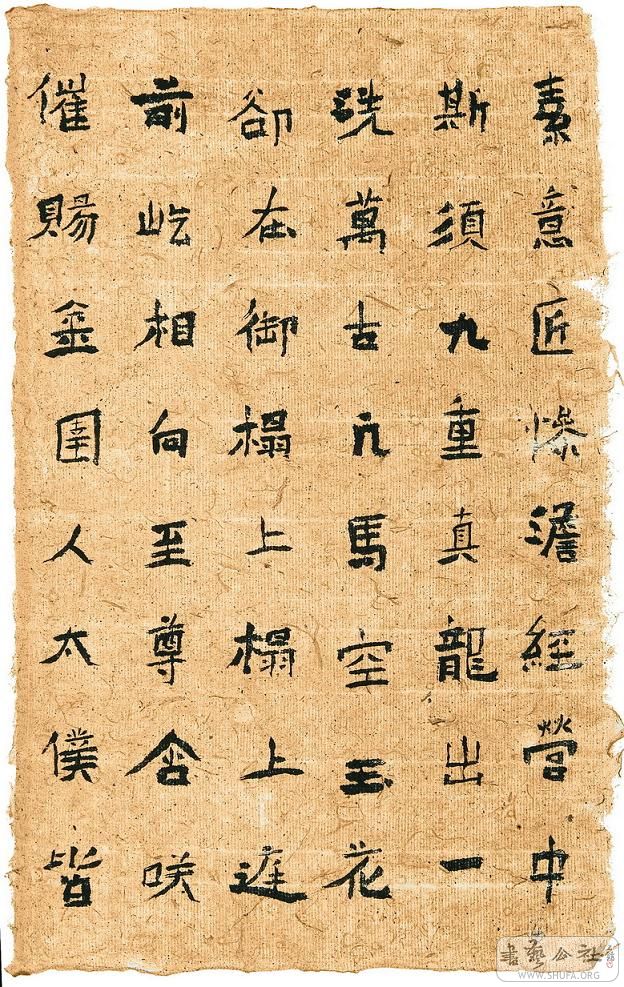 素意匠慘澹經營中
斯須九重真龍出一
洗萬古凡馬空玉花
卻在御榻上榻上庭
前屹相向至尊含咲
催賜金圉人太僕皆
書藝公社
WWW.SHUFA.ORG